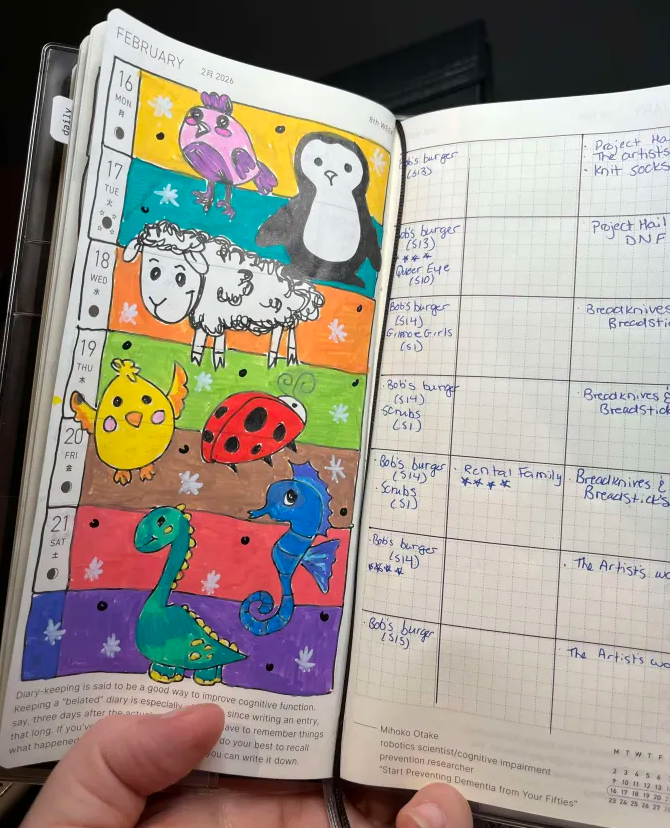 FEBRUARY
2月 2026
8th W
daily
16
MON
月
17
TUE
火
18
WED
水
19
THU
木
20
FRI
金
21
SAT
土
Diary-keeping is said to be a good way to improve cognitive function.
Keeping a "belated" diary is especially since writing an entry,
say, three days after the to remember things
that long. If you've do your best to recall
what happened you can write it down.
Bob's burger
(S13)
Bob's burger
(S13)
****
Queer Eye
(S10)
Bob's burger
(S14)
Gilmore Girls
(S1)
Bob's burger
(S14)
Scrubs
(S1)
Bob's burger
(S14)
Scrubs
(S1)
Bob's burger
(S14)
****
Bob's burger
(S15)
Rental Family
****
Project Ha
The artists
Knit socks
Project Hail
DNF
Breadknives
Breadstic
Breadknives &
Breadstick
Breadknives &
Breadsticks
The Artist's wa
The Artist's wa
Mihoko Otake
robotics scientist/cognitive impairment
prevention researcher
"Start Preventing Dementia from Your Fifties"
M T W T F
2 3 4 5 6
9 10 11 12 13
16 17 18 19 20
23 24 25 26 27